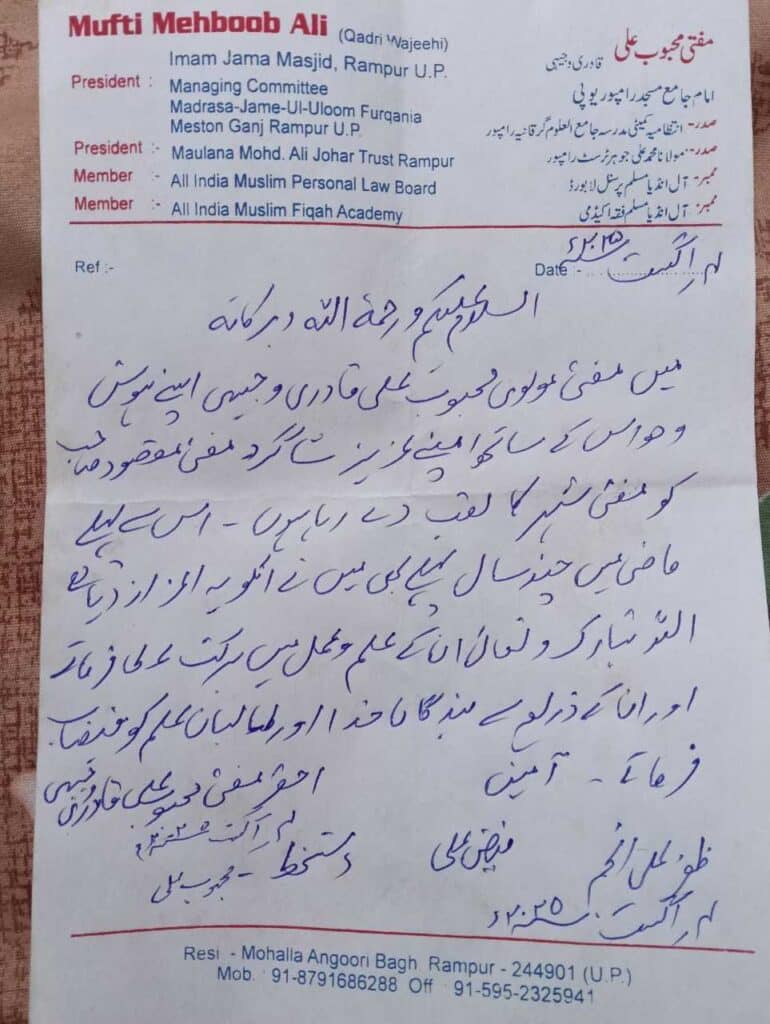 Mufti Mehboob Ali (Qadri Wajeehi)
Imam Jama Masjid, Rampur U.P.
President : Managing Committee
Madrasa-Jame-Ul-Uloom Furqania
Meston Ganj Rampur U.P.
President :- Maulana Mohd. Ali Johar Trust Rampur
Member :- All India Muslim Personal Law Board
Member :- All India Muslim Fiqah Academy
مفتی محبوب علی قادری وجیہی
امام جامع مسجد رامپور یوپی
صدر- انتظامیہ کمیٹی مدرسہ جامع العلوم فرقانیہ رامپور
صدر- مولانا محمد علی جوہر ٹرسٹ رامپور
ممبر- آل انڈیا مسلم پرسنل لا بورڈ
ممبر- آل انڈیا مسلم فقہ اکیڈمی
Ref :-
Date :- اگست ۲۰۲۵ء
السلام علیکم و رحمۃ اللہ و برکاتہ
میں مفتی مولوی محبوب علی قادری وجیہی اپنے ہوش
و حواس کے ساتھ اپنے عزیز شاگرد مفتی مقصود صاحب
کو مفتی شہر کا لقب دے رہا ہوں - اس سے پہلے
ماضی میں چند سال پہلے بھی میں نے انکو یہ اعزاز دیا ہے
اللہ تبارک و تعالیٰ ان کے علم و عمل میں برکت عطا فرمائے
اور ان کے ذریعے بندگان خدا اور طالبان علم کو فیضیاب
فرمائے - آمین
احقر مفتی محبوب علی قادری وجیہی
اگست ۲۰۲۵ء
دستخط - محبوب علی
فیض علی
ظفر علی انجم
اگست ۲۰۲۵ء
Resi - Mohalla Angoori Bagh Rampur - 244901 (U.P.)
Mob. 91-8791686288 Off 91-595-2325941